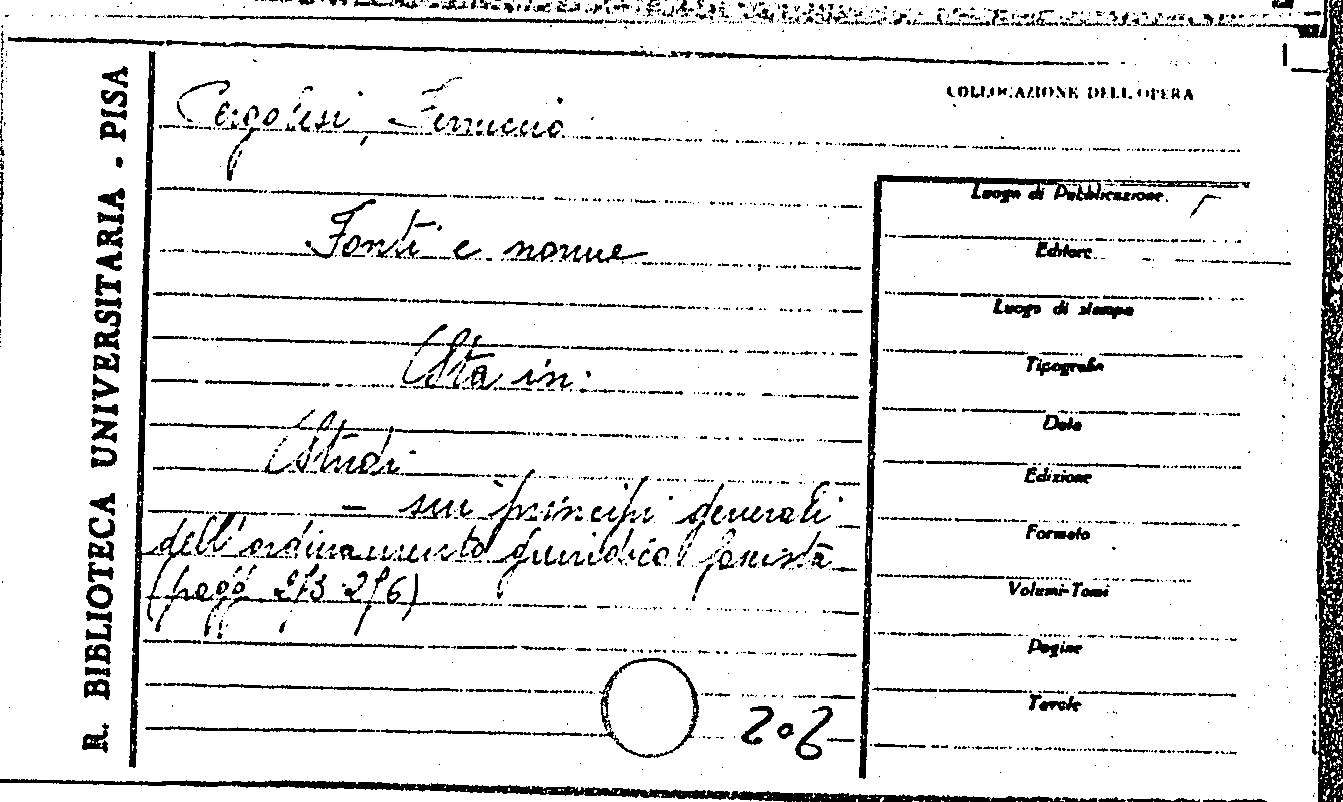 R. BIBLIOTECA UNIVERSITARIA - PISA
COLLOCAZIONE DELL'OPERA
Pergolesi, Ferruccio
Fonti e norme
Sta in:
Studi
– sui principi generali
dell'ordinamento giuridico fascista
(pagg.
Luogo di Pubblicazione
Editore
Luogo di stampa
Tipografia
Data
Edizione
Formato
Volumi-Tomi
Pagine
Tavole